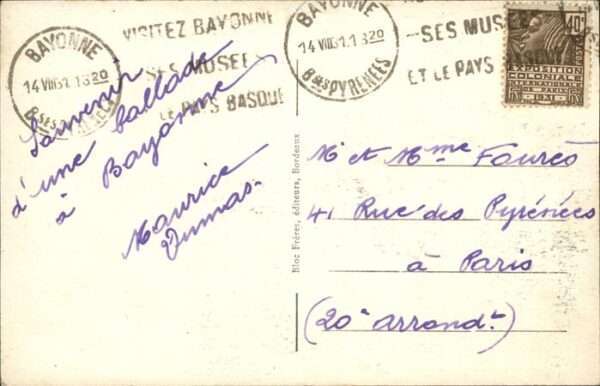 BAYONNE
14 VIII 31. 1320
Bses PYRENEES
VISITEZ BAYONNE
SES MUSEES
LE PAYS BASQUE
BAYONNE
14 VIII 31. 1320
Bses PYRENEES
SES MUS
ET LE PAYS
40c
POSTES
EXPOSITION
COLONIALE
INTERNATIONALE
DE PARIS
1931
Souvenir
d'une ballade
à Bayonne
Maurice
Dumas.
Bloc Frères, éditeurs, Bordeaux
Mr et Mme Fourès
41 Rue des Pyrénées
à Paris
(20e arrondt.)